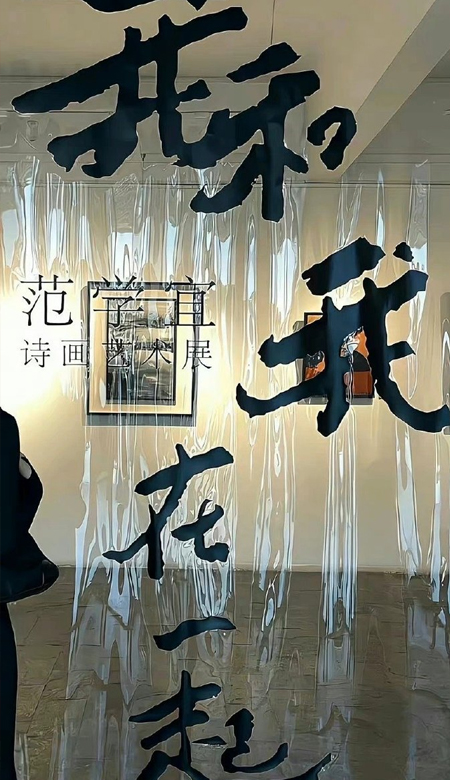 我和
我
在
一
起
范学宜
诗画艺术展